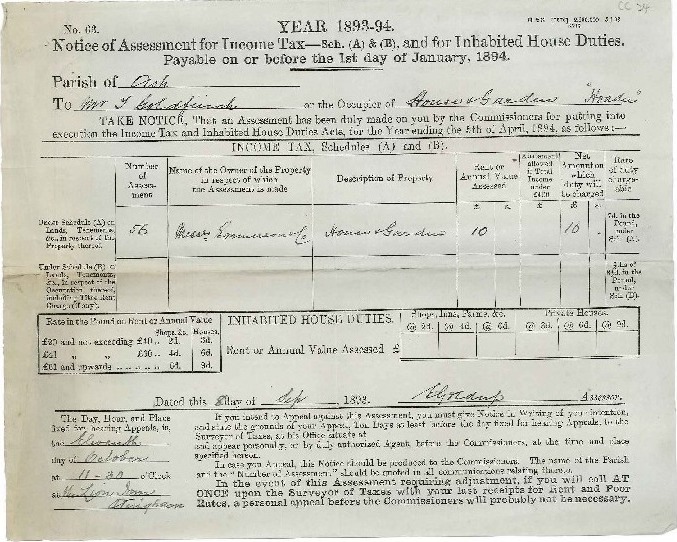 CC 34
No. 63.
YEAR 1893-94.
Notice of Assessment for Income Tax—Sch. (A) & (B), and for Inhabited House Duties.
Payable on or before the 1st day of January, 1894.
Parish of Ash
To Mr T Goldfinch or the Occupier of House & Garden "Hoaden"
TAKE NOTICE, That an Assessment has been duly made on you by the Commissioners for putting into
execution the Income Tax and Inhabited House Duties Acts, for the Year ending the 5th of April, 1894, as follows:—
INCOME TAX, Schedules (A) and (B).
Number of Assessment
Name of the Owner of the Property in respect of which the Assessment is made
Description of Property.
Rent or Annual Value Assessed
£ s.
Abatement allowed if Total Income under £400
£
Net Amount on which duty will be charged
£ s.
Rate of duty chargeable
Under Schedule (A) on Lands, Tenements, &c., in respect of the Property thereof.
56
Messrs
House & Garden
10
10
7d. in the Pound, under Sch. (A).
Under Schedule (B) on Lands, Tenements, &c., in respect of the Occupation thereof, including Tithe Rent Charge (if any).
in the Pound, under Sch. (B).
Rate in the Pound on Rent or Annual Value
Shops, &c. Houses.
£20 and not exceeding £40 .. 2d. 3d.
£41 " " £60 .. 4d. 6d.
£61 and upwards .......... 6d. 9d.
INHABITED HOUSE DUTIES.
Rent or Annual Value Assessed £
Shops, Inns, Farms, &c.
@ 2d. @ 4d. @ 6d.
Private Houses.
@ 3d. @ 6d. @ 9d.
Dated this 8 day of Sep, 1893. Assessor.
The Day, Hour, and Place
fixed for hearing Appeals, is,
the Eleventh
day of October
at 11-30 o'Clock
at the Lion Inn
Wingham
If you intend to Appeal against this Assessment, you must give Notice in Writing of your intention,
and state the grounds of your Appeal, Ten Days at least before the day fixed for hearing Appeals, to the
Surveyor of Taxes, at his Office situate at
and appear personally, or by duly authorized Agent, before the Commissioners, at the time and place
specified hereon.
In case you Appeal, this Notice should be produced to the Commissioners. The name of the Parish
and the "Number of Assessment" should be quoted in all communications relating thereto.
In the event of this Assessment requiring adjustment, if you will call AT
ONCE upon the Surveyor of Taxes with your last receipts for Rent and Poor
Rates, a personal appeal before the Commissioners will probably not be necessary.